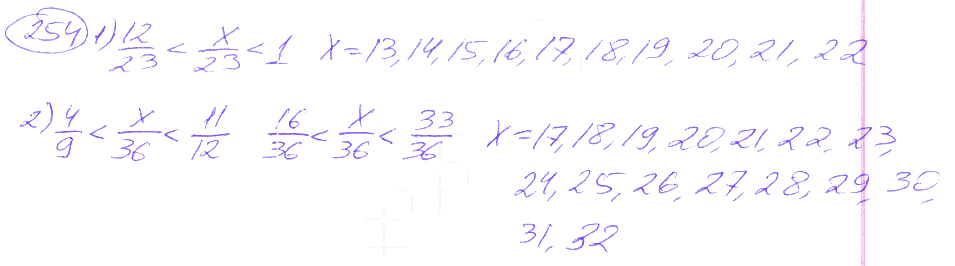 254 1) 12/23 < x/23 < 1 x = 13, 14, 15, 16, 17, 18, 19, 20, 21, 22
2) 4/9 < x/36 < 11/12 16/36 < x/36 < 33/36 x = 17, 18, 19, 20, 21, 22, 23,
24, 25, 26, 27, 28, 29, 30,
31, 32